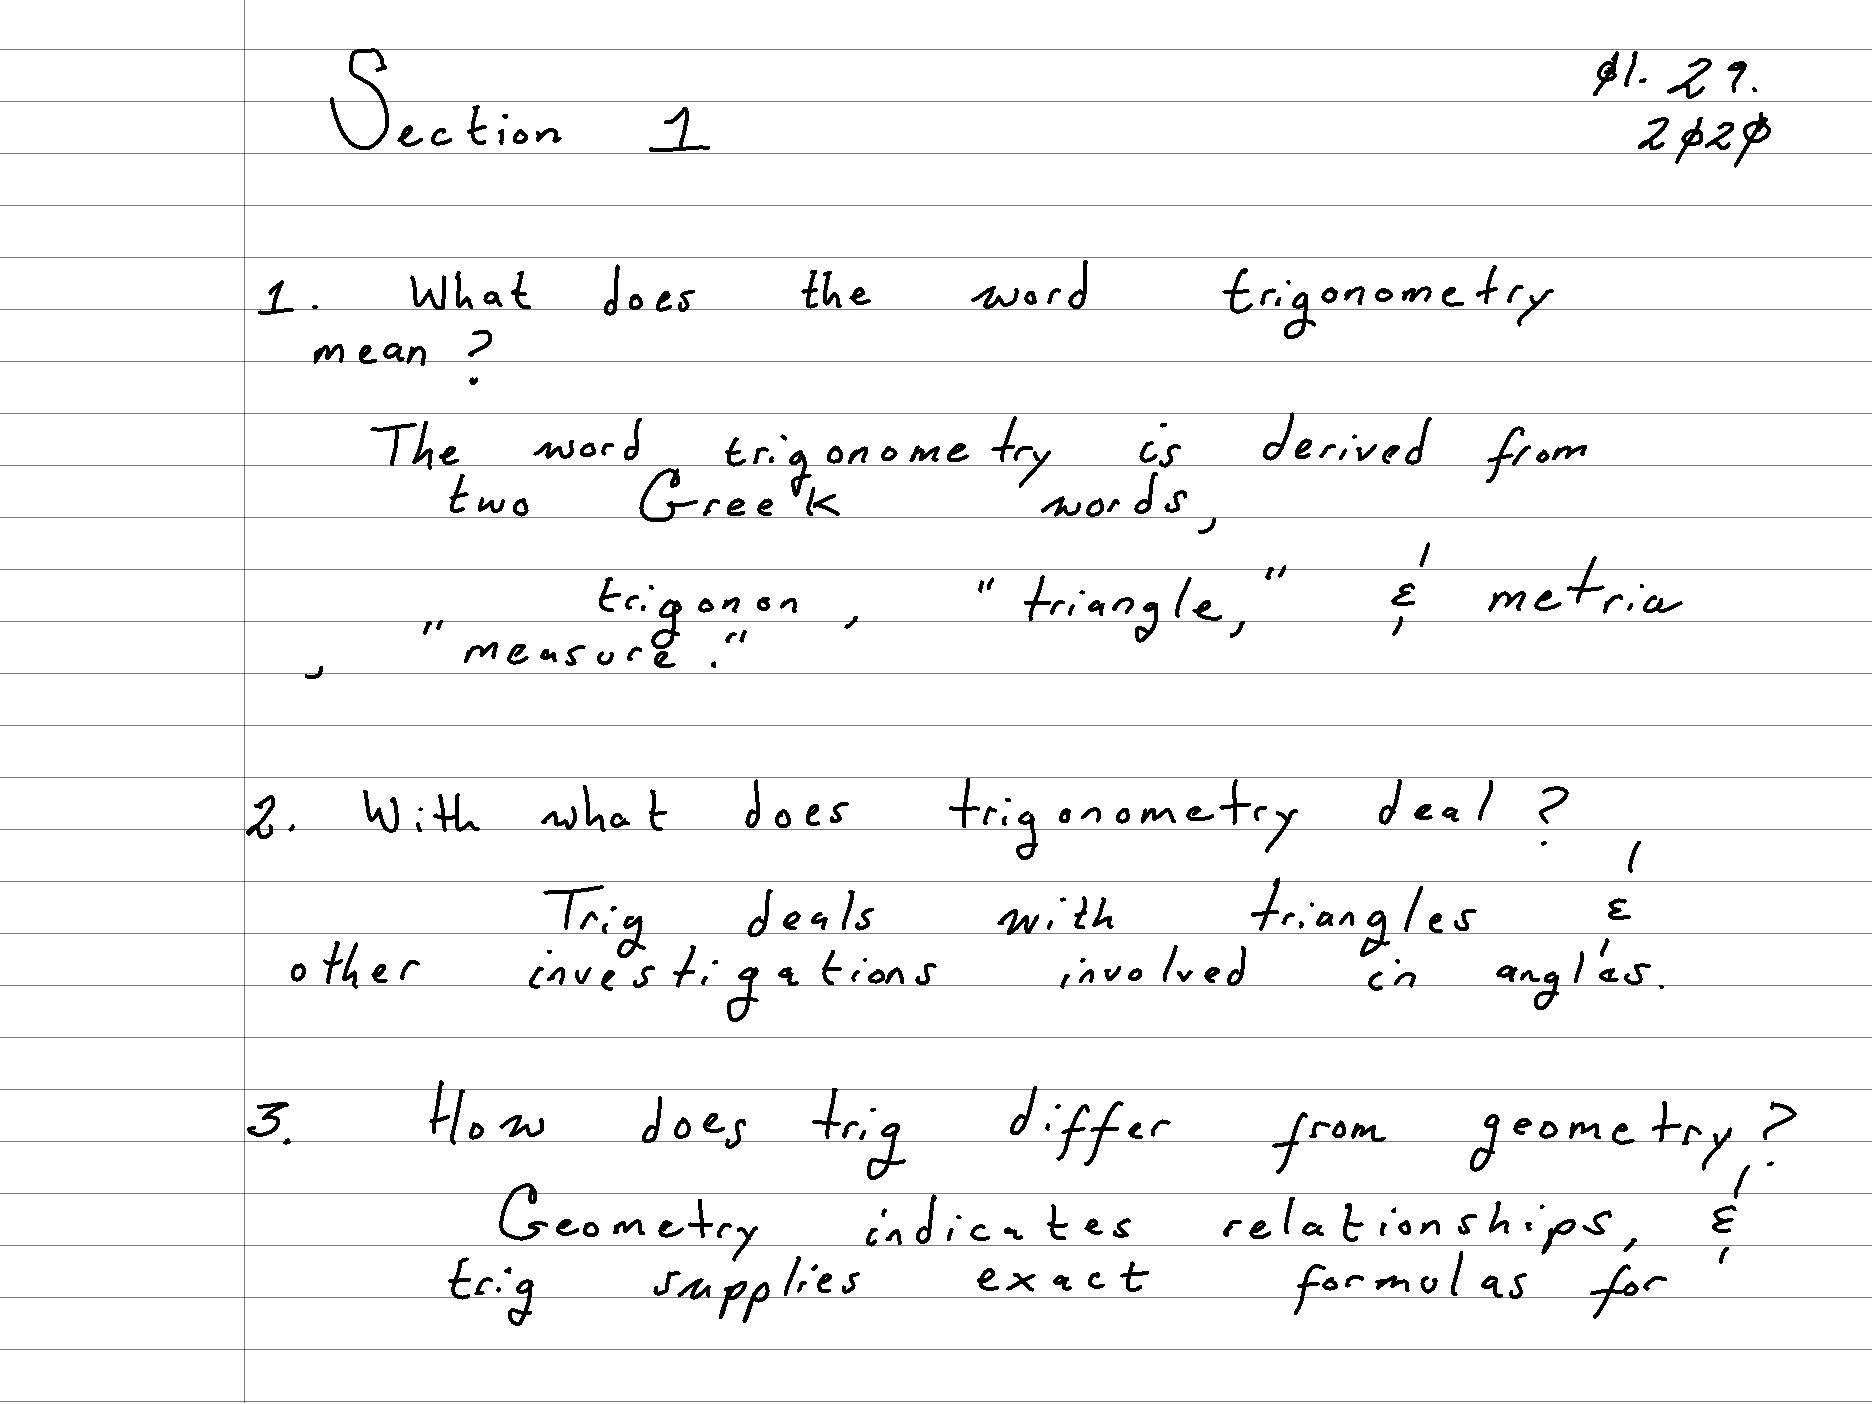 Section 1
01. 29.
2020
1. What does the word trigonometry
mean?
The word trigonometry is derived from
two Greek words,
trigonon, "triangle," & metria
, "measure."
2. With what does trigonometry deal?
Trig deals with triangles &
other investigations involved in angles.
3. How does trig differ from geometry?
Geometry indicates relationships, &
trig supplies exact formulas for